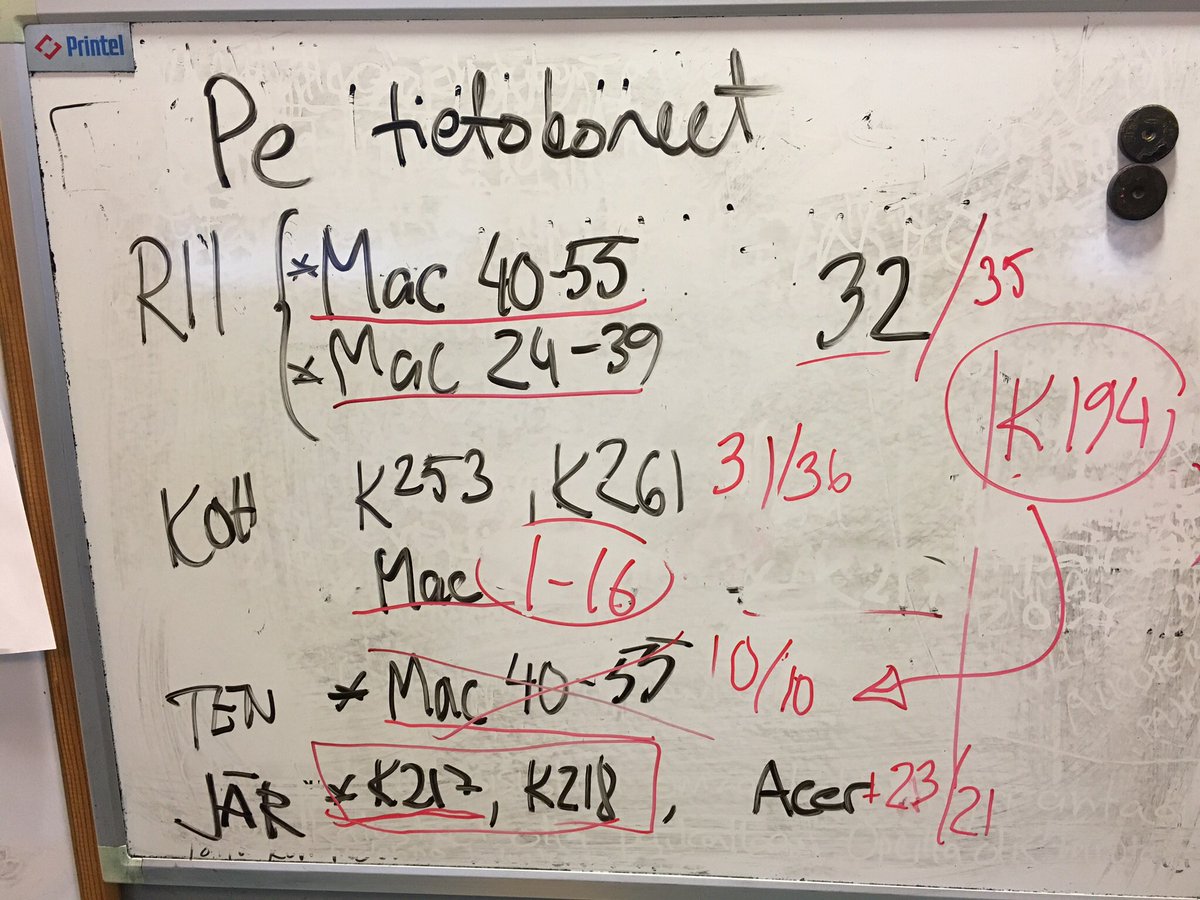 Printel
Pe tietokoneet
RII * Mac 40-55 32/35
* Mac 24-39
K194
KOH K253, K261 31/36
Mac 1-16
TEN * Mac 40-55 10/10
JÄR * K217, K218, Acer+23/21